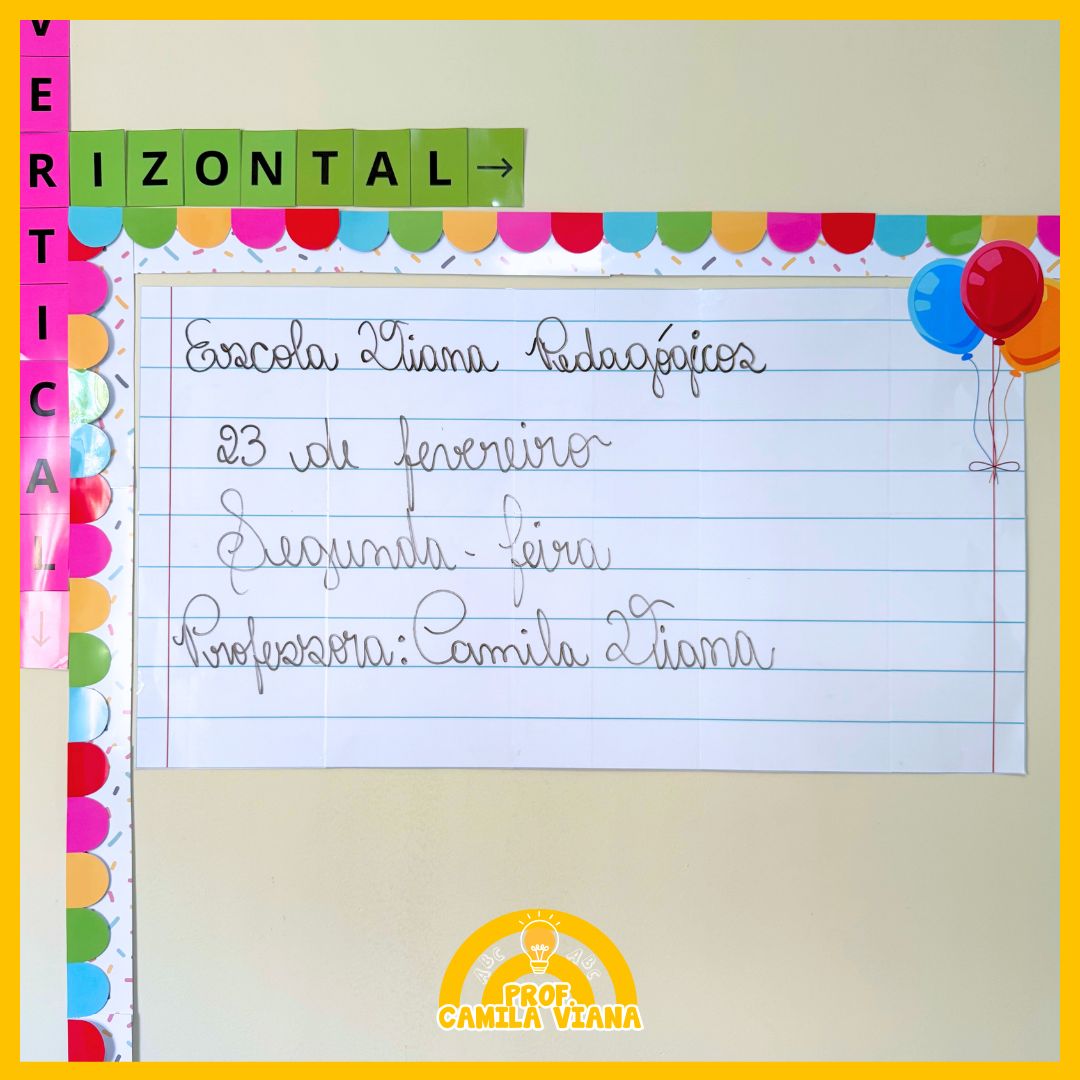 VERTICAL ↓
RIZONTAL →
Escola Viana Pedagógicos
23 de fevereiro
Segunda-feira
Professora: Camila Viana
ABC ABC
PROF.
CAMILA VIANA